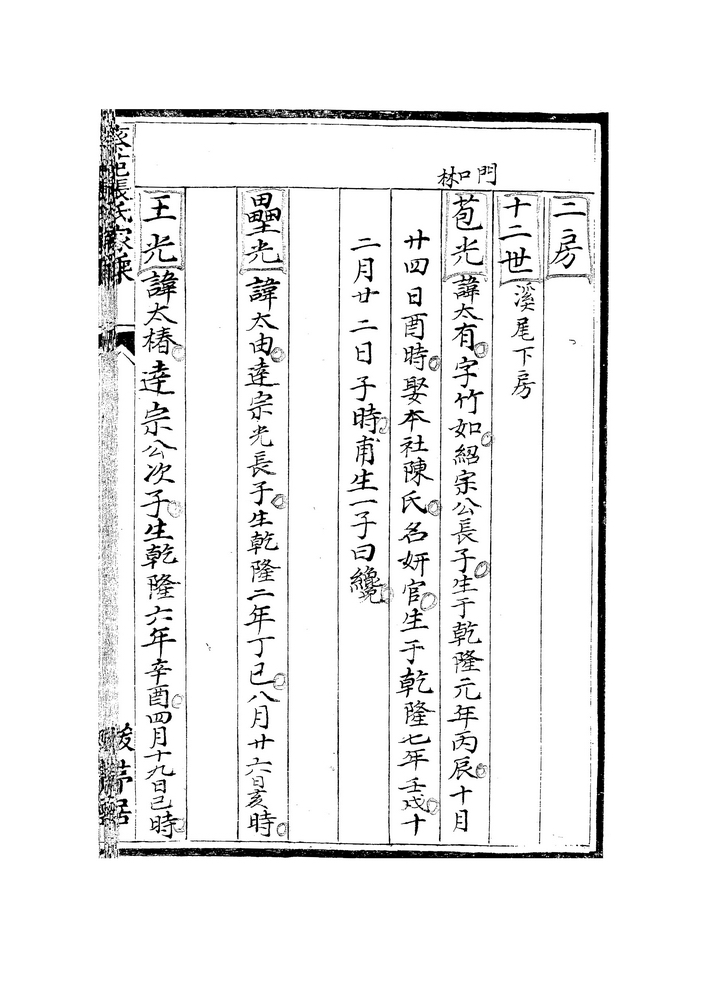 二房
十二世 溪尾下房
門口林
苞光 諱太有字竹如紹宗公長子生于乾隆元年丙辰十月
廿四日酉時娶本社陳氏名妍官生于乾隆七年壬戌十
二月廿二日子時甫生一子曰纔
壘光 諱太由逹宗光長子生乾隆二年丁巳八月廿六日亥時
王光 諱太椿逹宗公次子生乾隆六年辛酉四月十九日巳時
張氏家乘